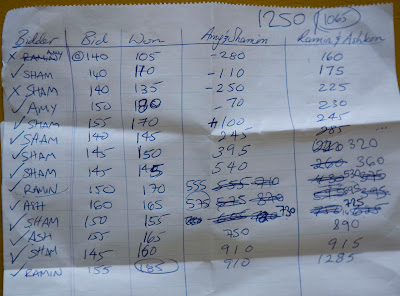 1250 (1065)
Bidder Bid Won Amy & Shamim Ramin & Ashkan
X Amy 140 105 -280 160
✓ SHAM 140 170 -110 175
X SHAM 140 135 -250 225
✓ AMY 150 180 -70 230
✓ SHAM 155 170 +100 245
✓ SHAM 140 145 245 285
✓ SHAM 145 150 395 320
✓ SHAM 145 145 540 360
✓ RAMIN 150 170 555 530
✓ ASH 160 165 575
✓ SHAM 150 155 730 725
✓ ASH 155 165 750 890
✓ SHAM 145 160 910 915
✓ RAMIN 155 185 910 1285